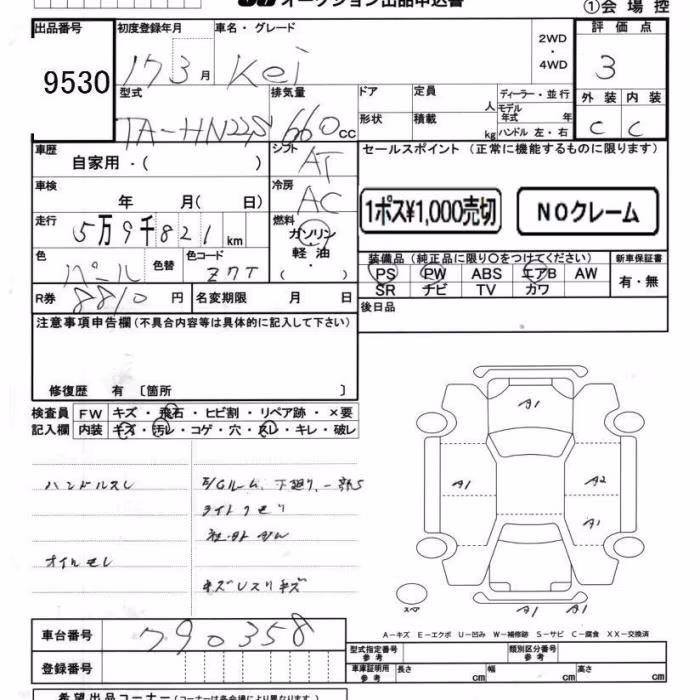 オークション出品申込書
①会場控
出品番号 初度登録年月 車名・グレード 2WD・4WD 評価点
9530 17 3月 Kei 3
型式 排気量 ドア 定員 人 ディーラー・並行 外装 内装
TA-HN22S 660cc 形状 積載 kg モデル年式 年 C C
ハンドル 左・右
車歴 自家用・( ) シフト AT セールスポイント (正常に機能するものに限ります)
車検 年 月( 日) 冷房 AC 1ポス¥1,000売切 NOクレーム
走行 5万9千821km 燃料 ガソリン 軽油 ・( )
色 パール 色替 色コード Z7T 装備品 (純正品に限り○をつけてください) 新車保証書
PS PW ABS エアB AW 有・無
SR ナビ TV カワ
R券 8810円 名変期限 月 日 後日品
注意事項申告欄 (不具合内容等は具体的に記入して下さい)
修復歴 有 〔箇所 〕
検査員 FW キズ・飛石・ヒビ割・リペア跡・×要
記入欄 内装 キズ・汚レ・コゲ・穴・スレ・キレ・破レ
A1
ハンドルスレ E/Gルーム、下廻り、一部S A1 A2
ライトクモリ
A1
オイルモレ
キズレスリキズ
スペア A1 A1
A-キズ E-エクボ U-凹み W-補修跡 S-サビ C-腐食 XX-交換済
車台番号 790358
型式指定番号 参考 類別区分番号 参考
登録番号 車庫証明用 参考 長さ cm 幅 cm 高さ cm
希望出品コーナー (コーナーは各会場により異なります)